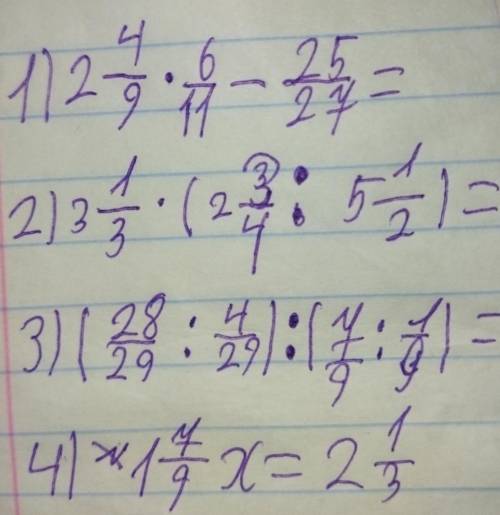 1) 2 4/9 · 6/11 − 25/27 =
2) 3 1/3 · (2 3/4 : 5 1/2) =
3) (28/29 : 4/29) : (7/9 : 1/9) =
4) 1 7/9 x = 2 1/3